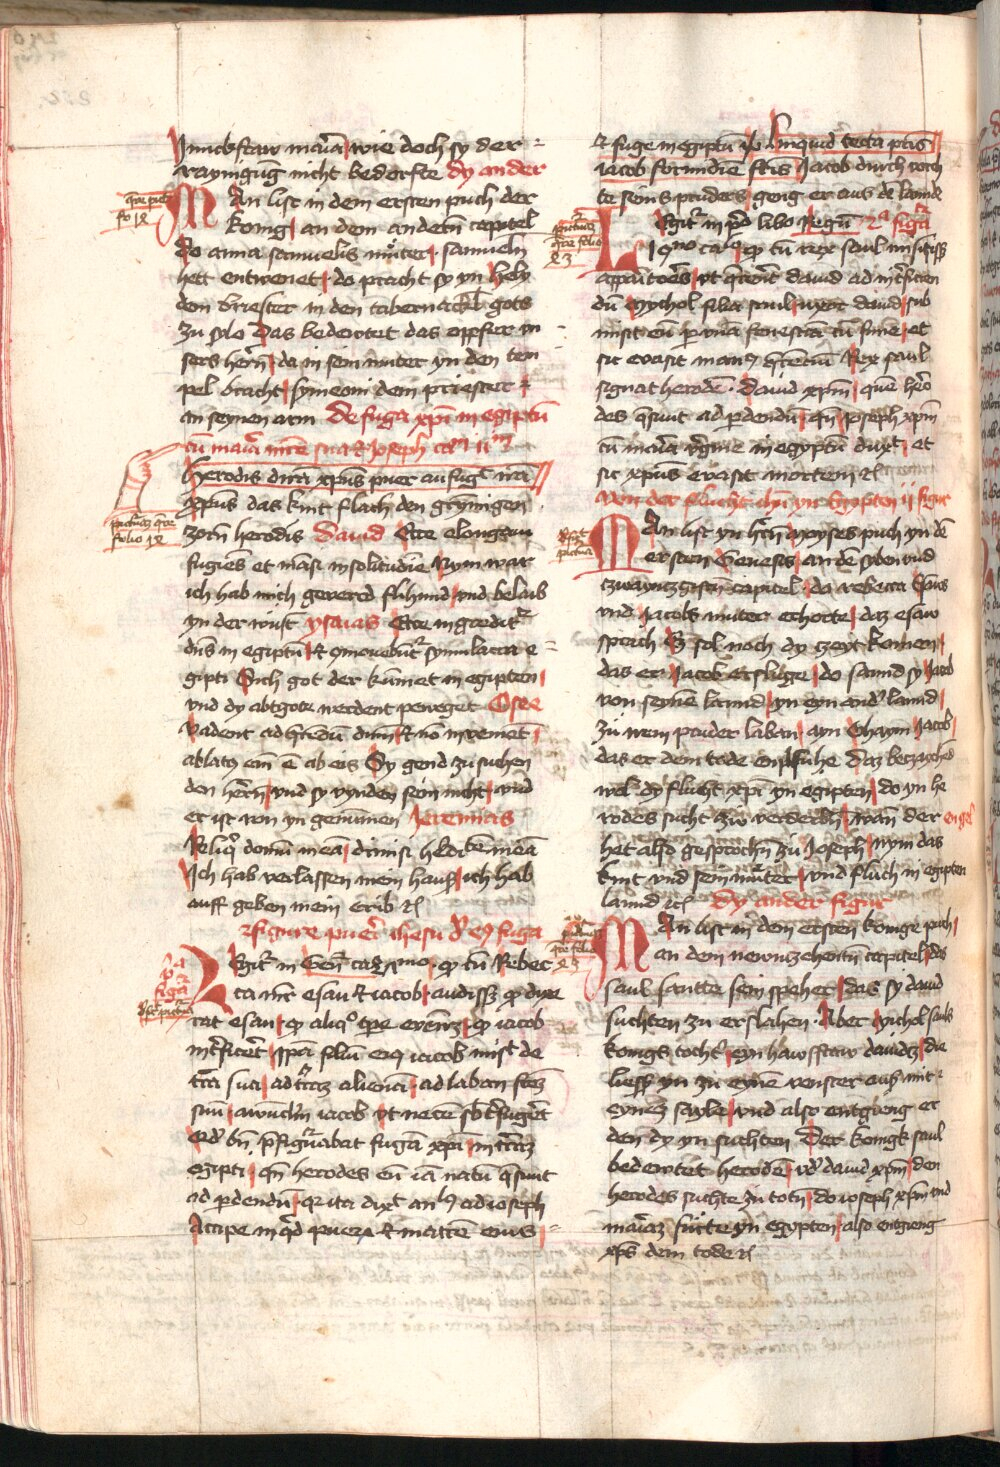 Junckfraw maria wie doch sy der
raynigung nicht bedorfte dy ander
Man list in dem ersten puch der
konig an dem andern capitel
do anna samuelis muter samueln
hett entwenet do pracht sy yn hely
dem briester in den tabernackel gots
zu sylo Das bedewtet das opffer vn
sers hern da in sein muter yn den tem
pel bracht symeoni dem priester
an seynen arm De fuga xpi in egiptu
cu maria mre sua et Joseph
herodis diram xpus puer aufugit iram
xpus das kint flach den grymigen
zorn herodis David Ecce elongavi
fugiens et mansi in solitudine Nym war
ich hab mich geverred flihund vnd belaib
yn der wust ysaias Ecce ingreditur
dns in egiptu et comovebutur symulacra e
gipti Sich got der kumet in egipten
vnd dy abtgote werdent peweget Osee
Vadent ad querendu dnm et no invenient
ablatus est ab eis Sy gend zu suchen
den hern vnd sy vynden sein nicht wnd
er ist von yn genumen Jeremias
Reliqi domu mea dimisi hereditate mea
Ich hab verlassen mein haus ich hab
auff geben mein erib etc
2 figure pueri ihesu de eius fuga
Legitur in Gen. ca. xxvii mo q cu Rebec
ca mr esau et iacob audisset q dixe
rat esau q aliqo tpre eveniret q iacob
interficeret ipa filiu eius iacob misit de
terra sua ad terra aliena ad laban frem
suu avunclm iacob vt nece sbterfugeret
Qd bn prefigurabat fuga xpi in terra
egipti qn herodes eu ia natu qsivit
ad pdendu qr ita dixit anglus ad ioseph
Accipe inqd pueru et matre eius
et fuge in egiptu Linquid tecta pris
iacob formidine fris Jacob durch vorch
te seins pruders geng er aus de lannde
Legitur in po libo Regu 2a figura
19no ca. q cu rex saul misisset
apparitores vt qrerent david ad interficien
du Mychol filia saul uxor david sub
misit eu per una fenestra cu fune et
sic evasit manus querentiu Rex saul
signat herode David xpm que hero
des qsivit ad pdendu qn Joseph xpm
cu maria vgine in egyptu duxit et
sic xpus evasit mortem etc
Von der flucht xpi yn Egypten ii figur
Man list yn hern moyses puch yn de
ersten Genesis an de syben vnd
czwaynzgisten capitel da rebecca Esaus
vnd Jacobs muter erhorte daz esaw
sprach Es sol noch dy zeyt komen
das er Jacob erslüge do sannd sy Jacob
von seyne lannd yn eyn and lannd
zu irem pruder laban ayn Ohaym Jacob
das er dem tode empfluhe Daz beczaychet
wol dy flucht xpi yn egipten do yn he
rodes sucht zw verderbn wan der engel
het also gesprochn zu Joseph nym das
kint vnd sein muter vnd fluch in egipten
lannd etc Dy ander figur
Man list in dem ersten konige puch
an dem newnzehentn capitel das
saul santte sein speher das sy david
suchten zu erslahen Aber Michol sauls
konigs tocht eyn hawsfraw davidz die
liess yn zu eyne venster aus mit
eynez sayle vnd also entgieng er
den dy yn suchten Der konigk saul
bedewtet herode vnd david xpm den
herodes suchte zu totn do ioseph xpm vnd
maria fürtte yn egypten also entgieng
xps dem tode etc